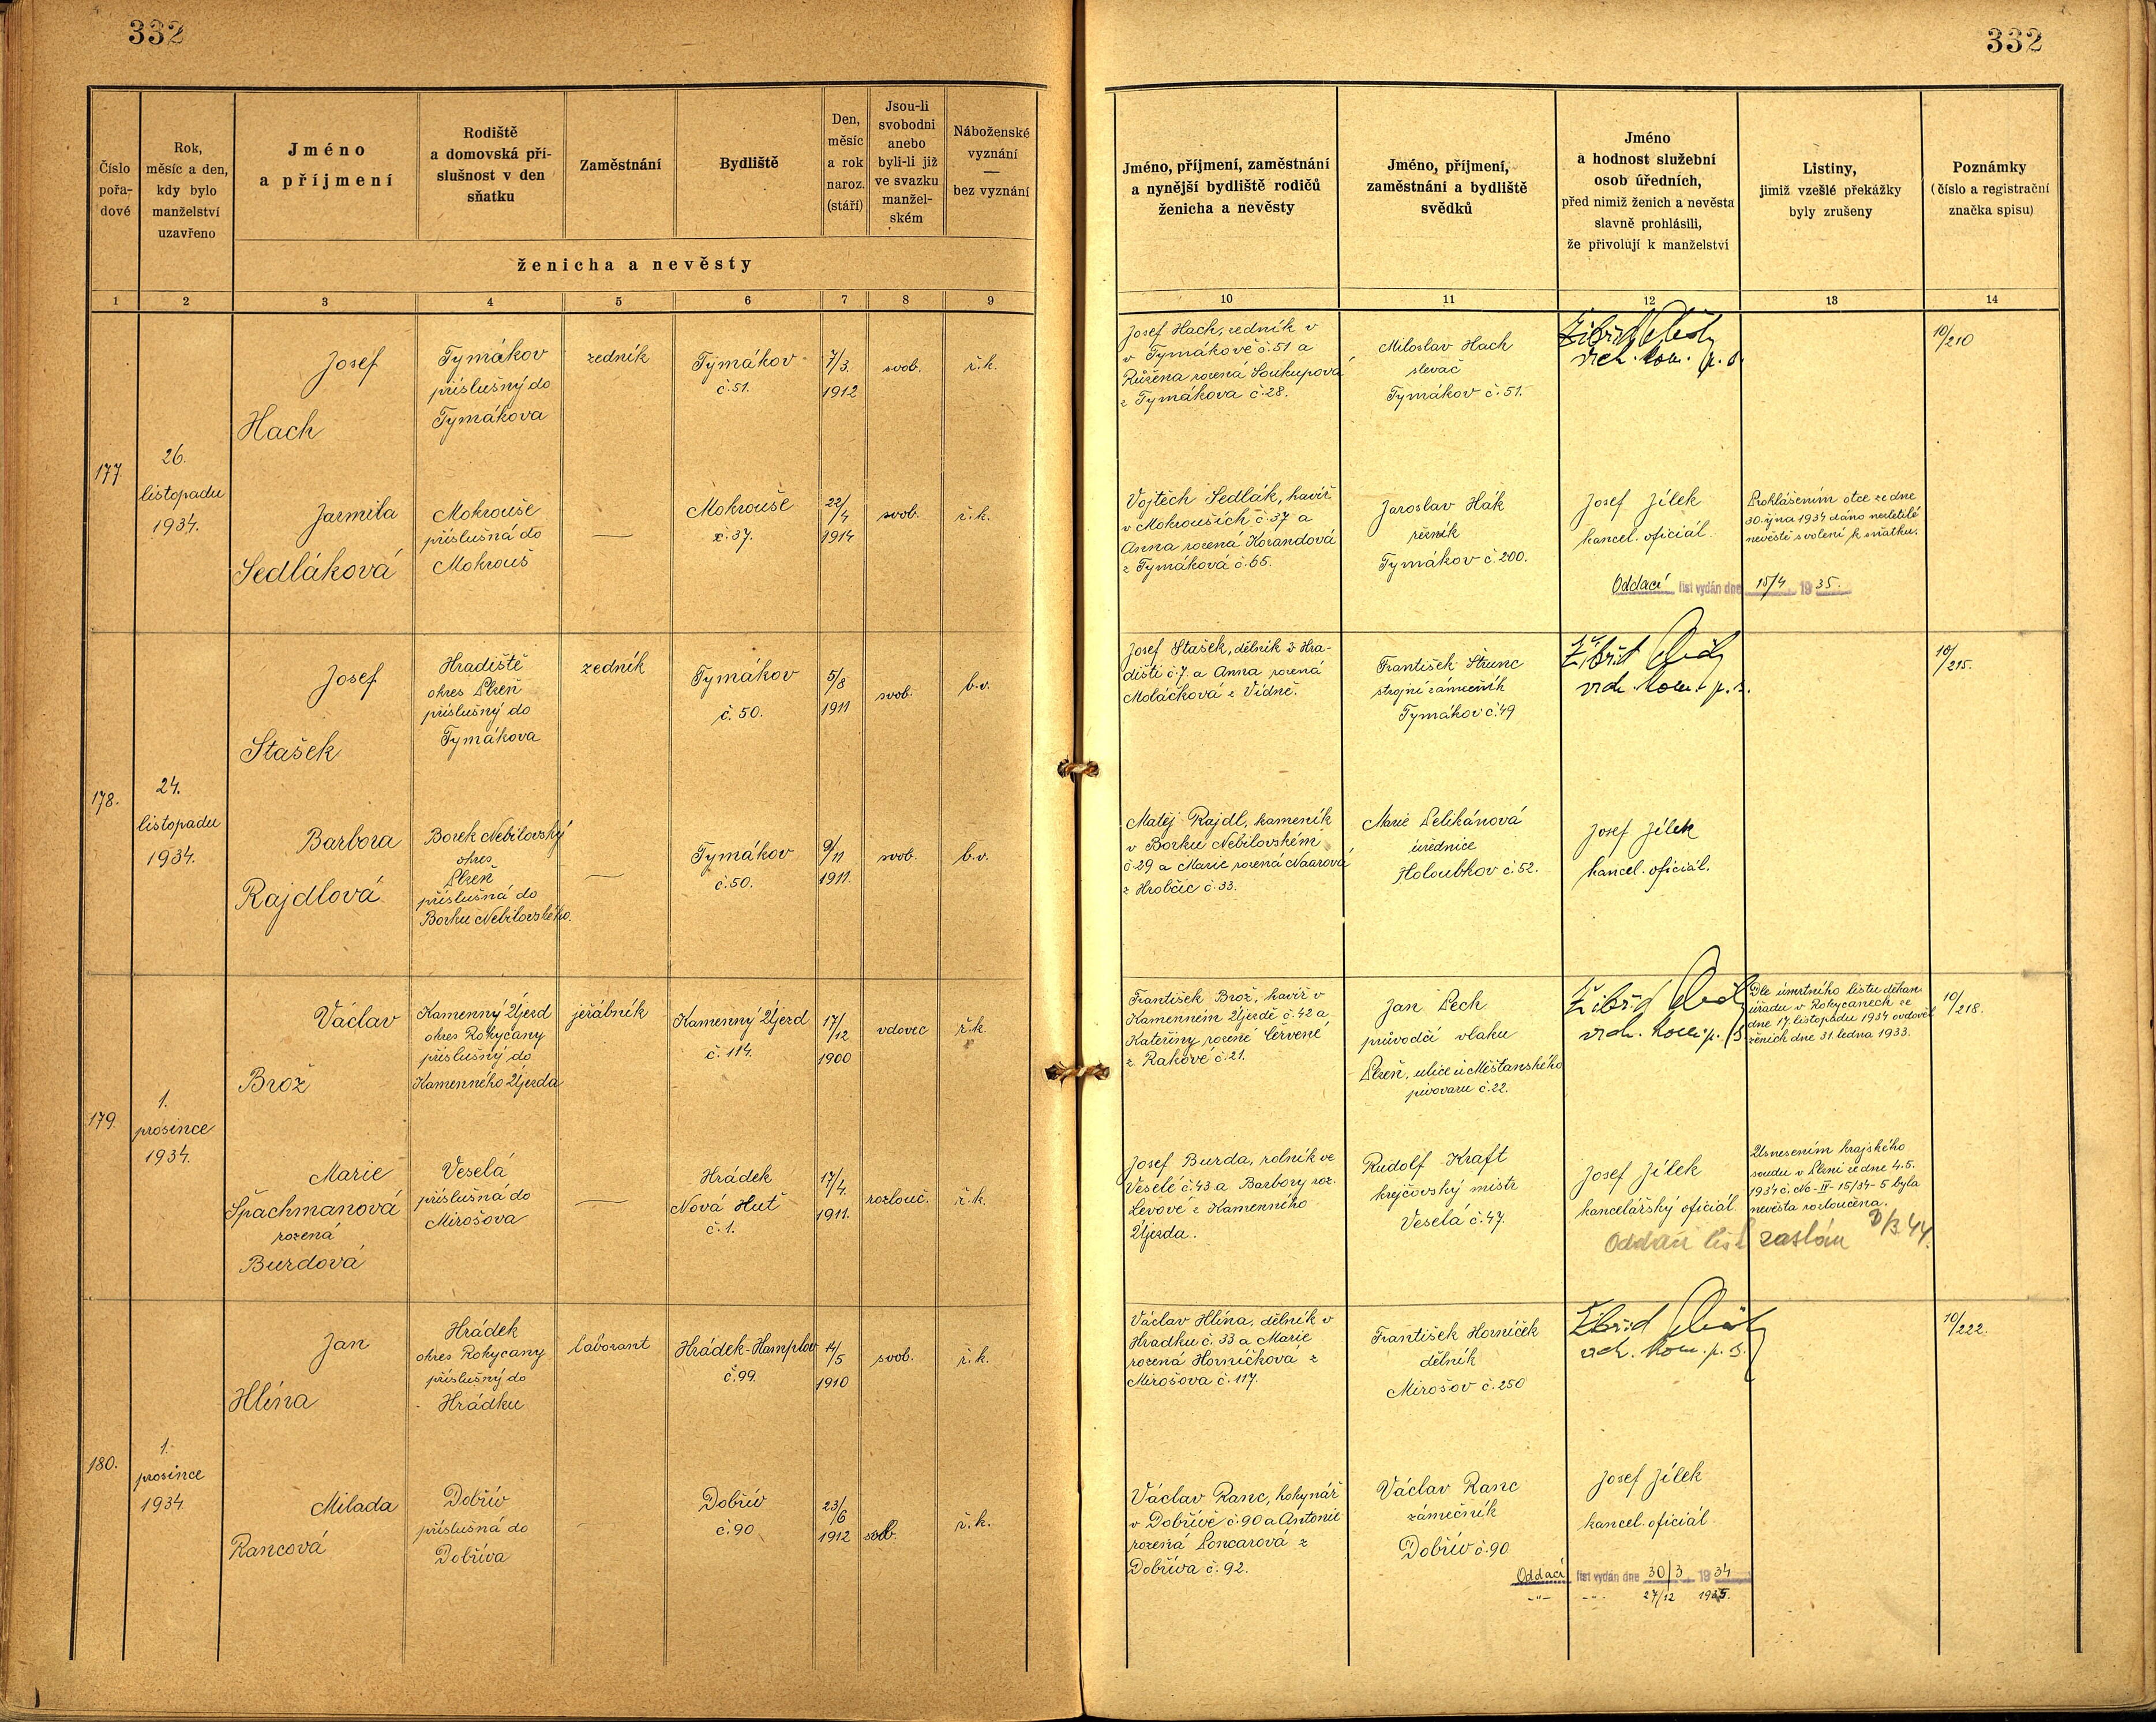 332
332
Číslo pořa- dové
Rok, měsíc a den, kdy bylo manželství uzavřeno
Jméno a příjmení
Rodiště a domovská pří- slušnost v den sňatku
Zaměstnání
Bydliště
Den, měsíc a rok naroz. (stáří)
Jsou-li svobodni anebo byli-li již ve svazku manžel- ském
Náboženské vyznání — bez vyznání
ženicha a nevěsty
Jméno, příjmení, zaměstnání a nynější bydliště rodičů ženicha a nevěsty
Jméno, příjmení, zaměstnání a bydliště svědků
Jméno a hodnost služební osob úředních, před nimiž ženich a nevěsta slavně prohlásili, že přivolují k manželství
Listiny, jimiž vzešlé překážky byly zrušeny
Poznámky (číslo a registrační značka spisu)
1 2 3 4 5 6 7 8 9 10 11 12 13 14
177.
26.
listopadu
1934.
Josef
Hach
Tymákov
příslušný do
Tymákova
zedník
Tymákov
č. 51.
7/3.
1912
svob.
ř. k.
Josef Hach, zedník v
v Tymákově č. 51 a
Růžena rozená Soukupová
z Tymákova č. 28.
Miloslav Hach
slevač
Tymákov č. 51.
vrch. kom. p. s.
10/210
Jarmila
Sedláková
Mokrouše
příslušná do
Mokrouš
—
Mokrouše
č. 37.
22/4
1914
svob.
ř. k.
Vojtěch Sedlák, havíř
v Mokrouších č. 37 a
Anna rozená Korandová
z Tymákova č. 65.
Jaroslav Hák
řezník
Tymákov č. 200.
Josef Jílek
kancel. oficiál.
Prohlášením otce ze dne
30. října 1934 dáno nezletilé
nevěstě svolení k sňatku.
Oddací list vydán dne 15/4 1935.
178.
24.
listopadu
1934.
Josef
Stašek
Hradiště
okres Plzeň
příslušný do
Tymákova
zedník
Tymákov
č. 50.
5/8
1911
svob.
b. v.
Josef Stašek, dělník z Hra-
diště č. 7. a Anna rozená
Moláčková z Vídně.
František Štrunc
strojní zámečník
Tymákov č. 49
vrch. kom. p. s.
10/215.
Barbora
Rajdlová
Borek Nebílovský
okres
Plzeň
příslušná do
Borku Nebílovského.
—
Tymákov
č. 50.
9/11
1911.
svob.
b. v.
Matěj Rajdl, kameník
v Borku Nebílovském
č. 29 a Marie rozená Naarová
z Hrobčic č. 33.
Marie Pelikánová
úřednice
Holoubkov č. 52.
Josef Jílek
kancel. oficiál.
179.
1.
prosince
1934.
Václav
Brož
Kamenný Újezd
okres Rokycany
příslušný do
Kamenného Újezda
jeřábník
Kamenný Újezd
č. 114.
17/12
1900
vdovec
ř. k.
František Brož, havíř v
Kamenném Újezdě č. 42 a
Kateřiny rozené Červené
z Rakové č. 21.
Jan Pech
průvodčí vlaku
Plzeň, ulice u Měšťanského
pivovaru č. 22.
vrch. kom. p. s.
Dle úmrtního listu děkan.
úřadu v Rokycanech ze
dne 17. listopadu 1934 ovdověl
ženich dne 31. ledna 1933.
10/218.
Marie
Špachmanová
rozená
Burdová
Veselá
příslušná do
Mirošova
—
Hrádek
Nová Huť
č. 1.
17/4.
1911.
rozlouč.
ř. k.
Josef Burda, rolník ve
Veselé č. 43 a Barbory roz.
Levové z Kamenného
Újezda.
Rudolf Kraft
krejčovský mistr
Veselá č. 47.
Josef Jílek
kancelářský oficiál.
Usnesením krajského
soudu v Plzni ze dne 4. 5.
1934 č. Nc-IV-15/34-5 byla
nevěsta rozloučena.
Oddací list zaslán
180.
1.
prosince
1934
Jan
Hlína
Hrádek
okres Rokycany
příslušný do
Hrádku
laborant
Hrádek-Hamplov
č. 99.
14/5
1910
svob.
ř. k.
Václav Hlína, dělník v
Hrádku č. 33 a Marie
rozená Horníčková z
Mirošova č. 117.
František Horníček
dělník
Mirošov č. 250
vrch. kom. p. s.
10/222.
Milada
Rancová
Dobřív
příslušná do
Dobříva
—
Dobřív
č. 90
23/6
1912
svob.
ř. k.
Václav Ranc, hokynář
v Dobříve č. 90 a Antonie
rozená Loncarová z
Dobříva č. 92.
Václav Ranc
zámečník
Dobřív č. 90
Josef Jílek
kancel. oficiál
Oddací list vydán dne 30/3 1934
-"- -"- 27/12 1935.